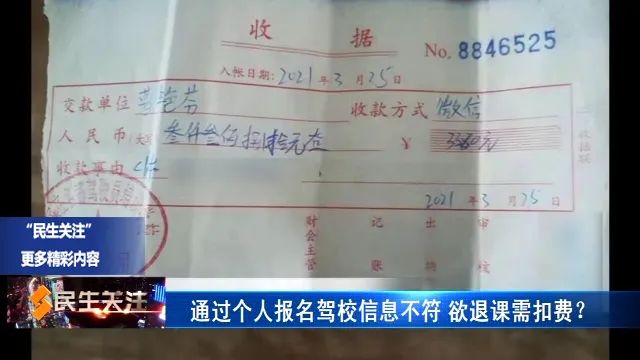 收 据
No. 8846525
入帐日期：2021年3月25日
交款单位
收款方式 微信
人民币（大写） 叁仟叁佰捌拾元
¥
收款事由
收据联
2021年3月25日
财会主管 记 出 审
“民生关注”
更多精彩内容
民生关注
通过个人报名驾校信息不符 欲退课需扣费？